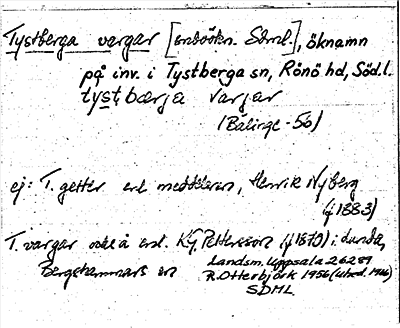 Tystberga vargar [ Söml.], öknamn
på inv. i Tystberga sn, Rönö hd, Söd.l.
tystbærja varjar
(Bälinge -56)
ej: T. getter enl meddelaren, Henrik Nyberg
(f 1883)
T. vargar också enl. K.G. Pettersson (f 1870) i Lunda,
Bergshammars sn Landsm. Uppsala 26289
R. Otterbjörk 1956
SDML